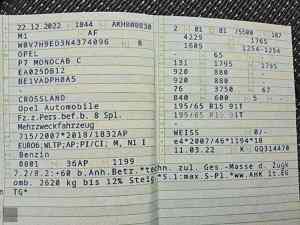 22.12.2022 1844 AKH000030 2 01 01 /5500 107
M1 AF 4229 1765
W0V7H9ED3N4374096 8 1609 1254-1254
OPEL 65
P7 MONOCAB C 131 1795
EA025DB12 920 880
BE1VADPH8A5 920 880
76 3750 67
CROSSLAND 840 600 5
Opel Automobile 195/65 R15 91T
Fz.z.Pers.bef.b. 8 Spl. 195/65 R15 91T
Mehrzweckfahrzeug
715/2007*2018/1832AP WEISS 0/
EURO6;WLTP;AP;PI/CI; M, N1 I e4*2007/46*1194*18
Benzin 11.03.22 K GQ314470
0001 36AP 1199
7.2/8.2:+60 b.Anh.Betr.*techn. zul. Ges.-Masse d. Zugk
omb. 2620 kg bis 12% Steig
TG*